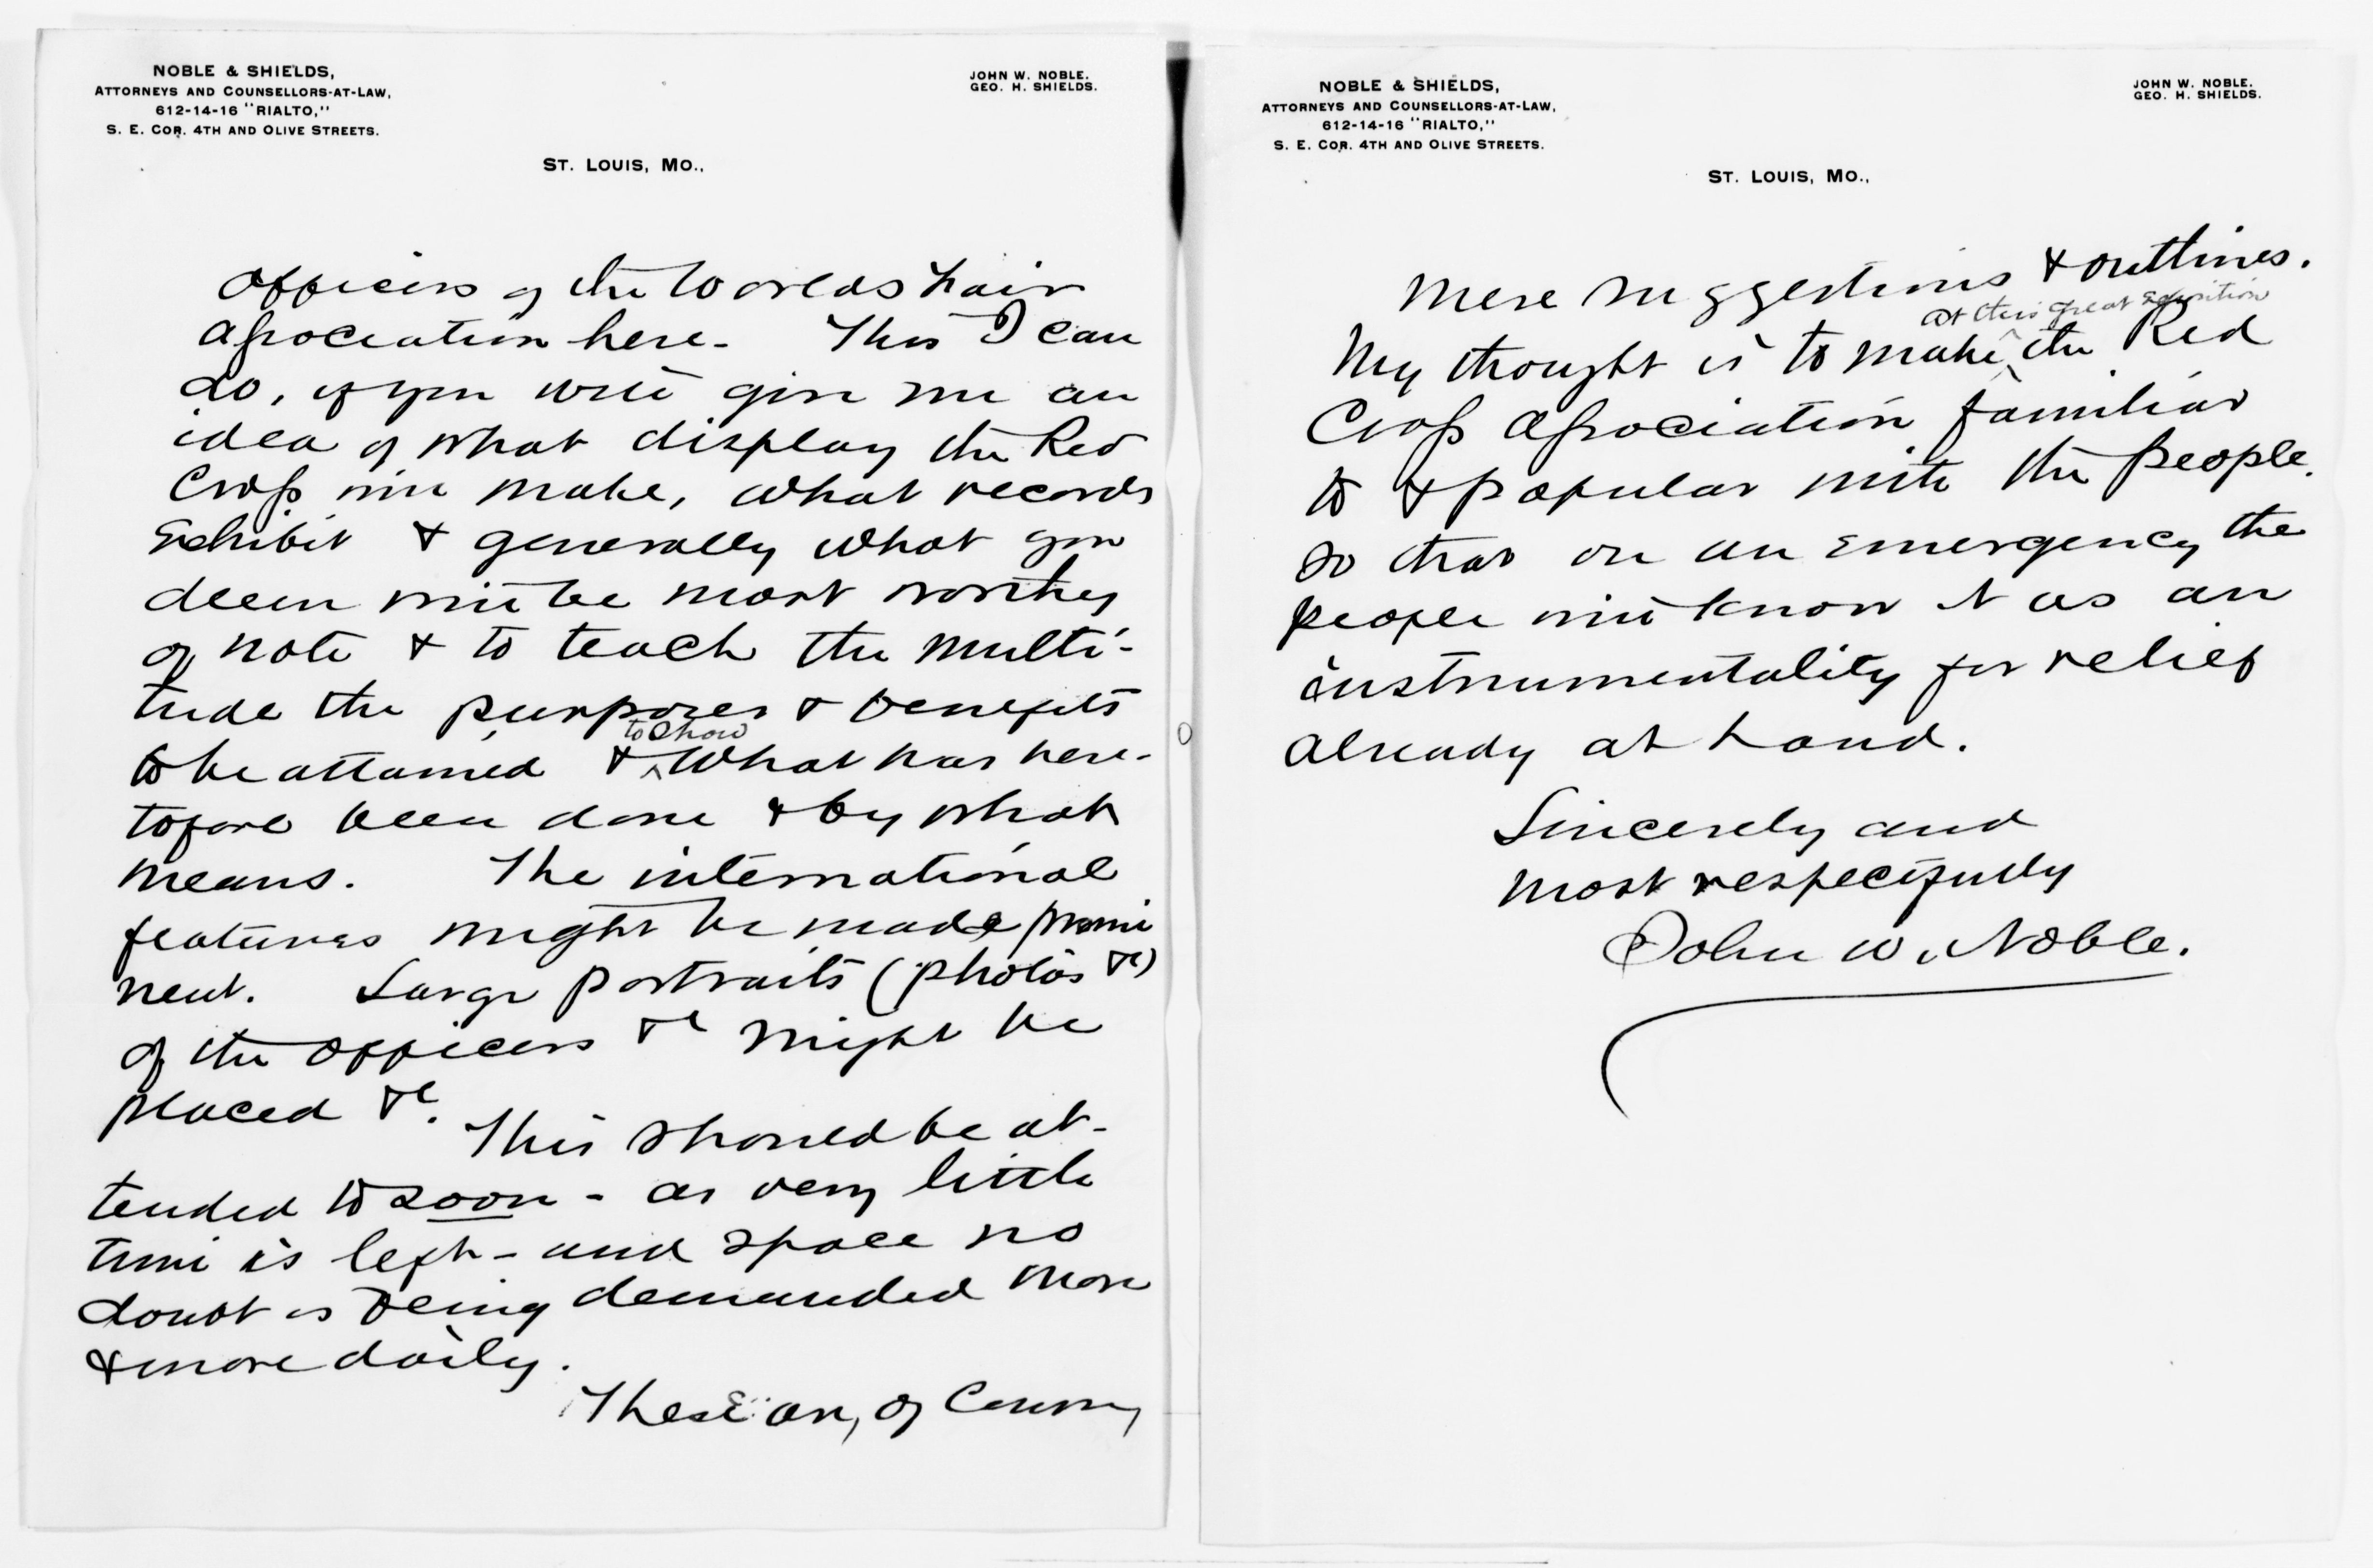 NOBLE & SHIELDS,
ATTORNEYS AND COUNSELLORS-AT-LAW,
612-14-16 "RIALTO,"
S. E. COR. 4TH AND OLIVE STREETS.
JOHN W. NOBLE.
GEO. H. SHIELDS.
ST. LOUIS, MO.,
officers of the Worlds Fair
Association here - This I can
do, if you will give me an
idea of what display the Red
Cross will make, what records
exhibit & generally what you
deem will be most worthy
of note & to teach the multi-
tude the purposes & benefits
to be attained & to show what has here-
tofore been done & by what
means. The international
features might be made promi
nent. Large portraits (photos &c)
of the officers &c might be
placed &c.
This should be at-
tended to soon - as very little
time is left - and space no
doubt is being demanded more
& more daily.
These are, of course,
NOBLE & SHIELDS,
ATTORNEYS AND COUNSELLORS-AT-LAW,
612-14-16 "RIALTO,"
S. E. COR. 4TH AND OLIVE STREETS.
JOHN W. NOBLE.
GEO. H. SHIELDS.
ST. LOUIS, MO.,
mere suggestions & outlines.
My thought is to make at this great exposition the Red
Cross Association familiar
to & popular with the people.
so that on an emergency the
people will know it as an
instrumentality for relief
already at hand.
Sincerely and
most respectfully
John W. Noble.